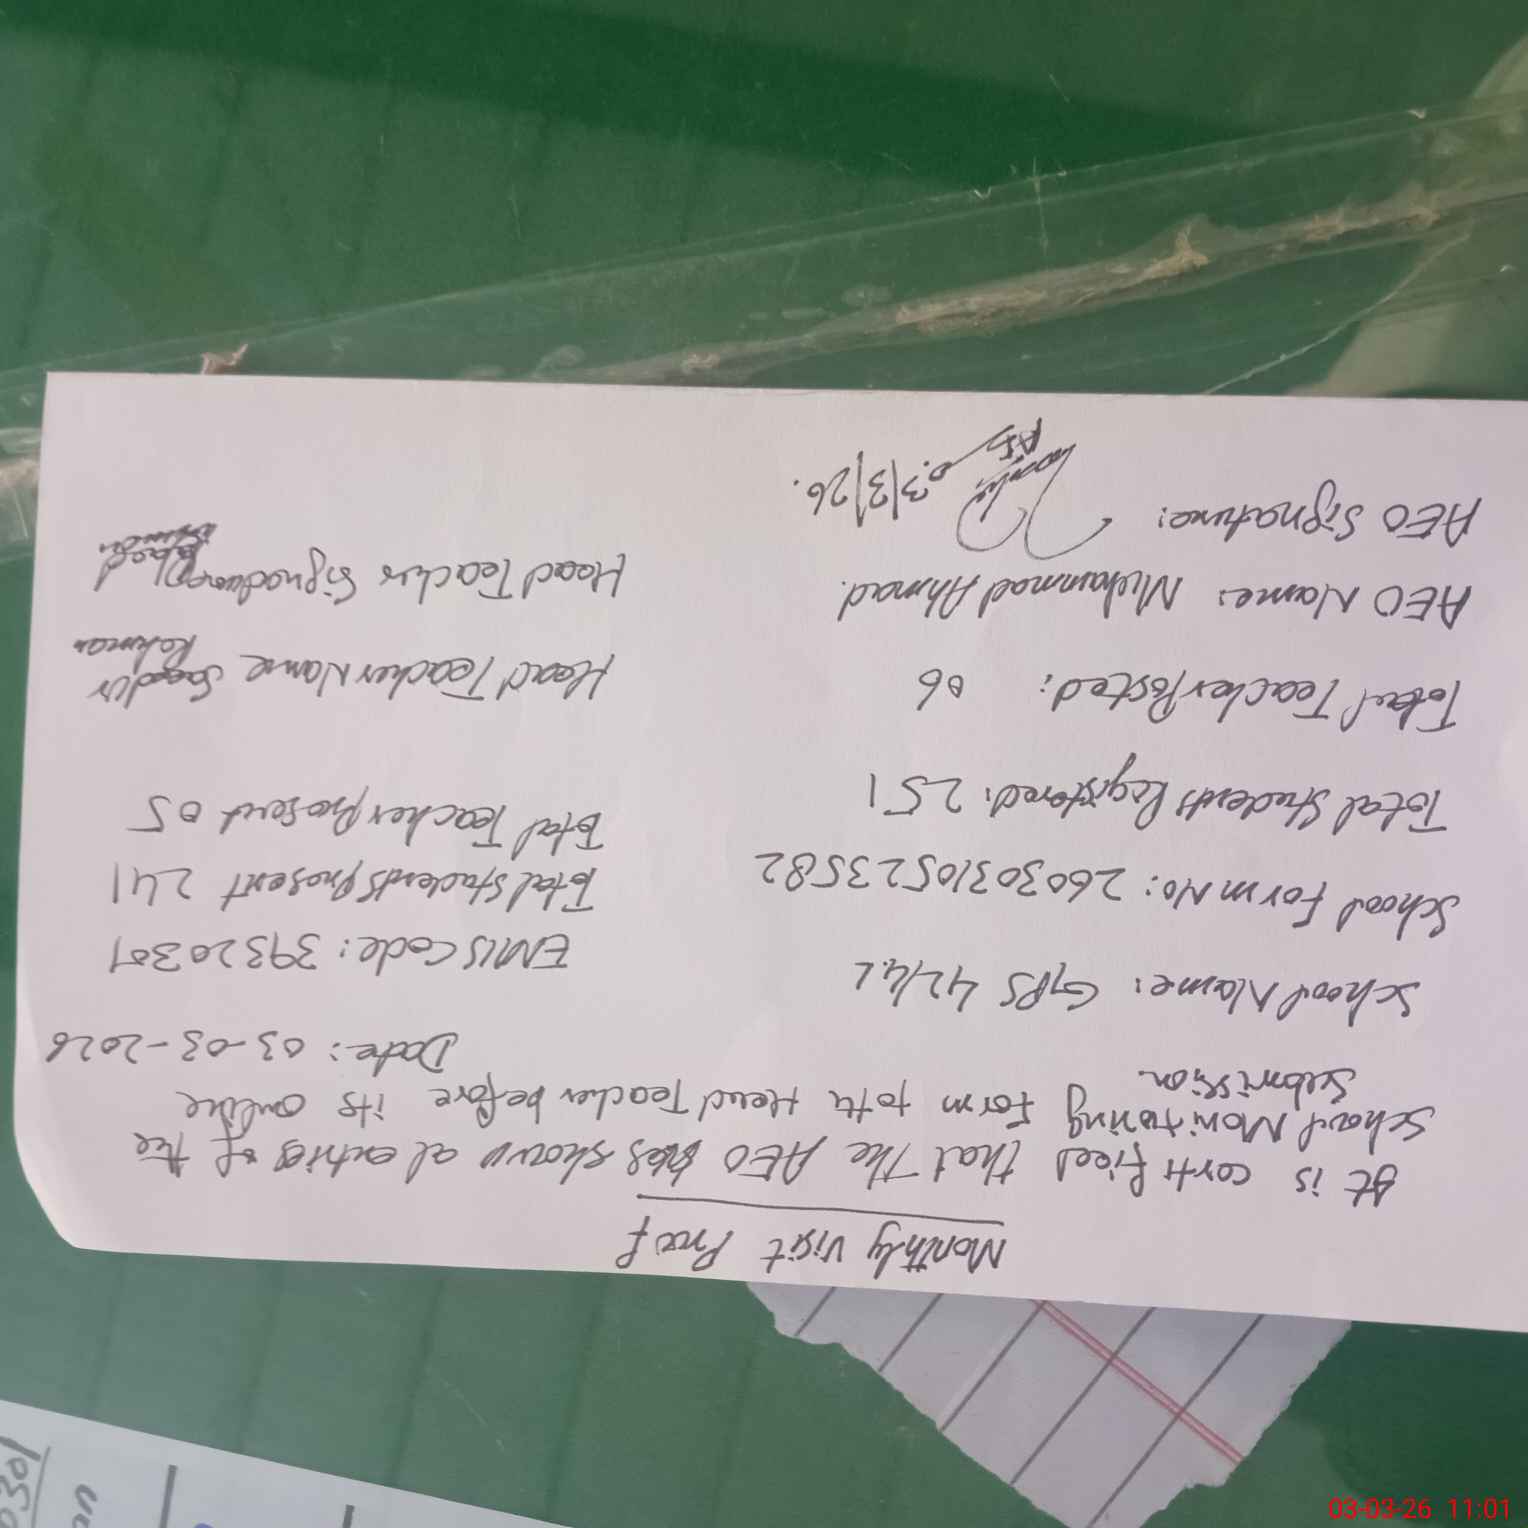 Monthly visit Proof
It is certified that the AEO has shown al entries of the
School Monitoring Form to the Head Teacher before its online
Submission.
Date: 03-03-2026
School Name: GPS 42/4.L
EMIS Code: 39320301
School Form No: 26030310523582
Total Students Present 241
Total Students Registered: 251
Total Teacher Present 05
Total Teacher Posted: 06
Head Teacher Name Saeed Ur
Rehman
AEO Name: Muhammad Ahmad.
Head Teacher Signature
AEO Signature:
03/3/26.
0301
03-03-26 11:01